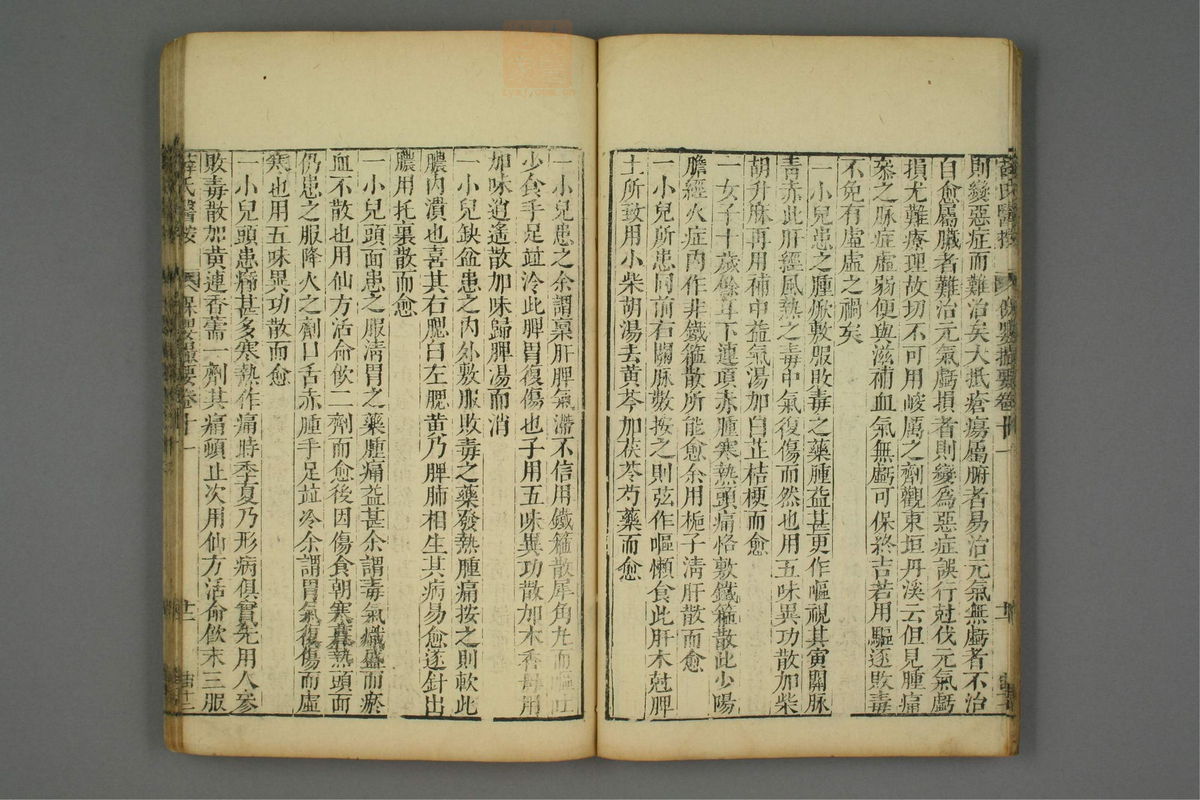 薛氏醫按 保嬰撮要卷十一
則變惡症而難治矣大抵瘡瘍屬腑者易治元氣無虧者不治
自愈屬臟者難治元氣虧損者則變爲惡症誤行尅伐元氣虧
損尤難療理故切不可用峻厲之劑觀東垣丹溪云但見腫痛
叅之脉症虛弱便與滋補血氣無虧可保終吉若用驅逐敗毒
不免有虛虛之禍矣
一小兒患之腫焮敷服敗毒之藥腫益甚更作嘔視其寅關脉
青赤此肝經風熱之毒中氣復傷而然也用五味異功散加柴
胡升麻再用補中益氣湯加白芷桔梗而愈
一女子十歲餘耳下連項赤腫寒熱頭痛恪敷鐵箍散此少陽
膽經火症內作非鐵箍散所能愈余用梔子淸肝散而愈
一小兒所患同前右關脉數按之則弦作嘔懶食此肝木尅脾
土所致用小柴胡湯去黃芩加茯苓芍藥而愈
一小兒患之余謂稟肝脾氣滯不信用鐵箍散犀角丸而嘔吐
少食手足並冷此脾胃復傷也予用五味異功散加木香母用
加味逍遙散加味歸脾湯而消
一小兒缺盆患之內外敷服敗毒之藥發熱腫痛按之則軟此
膿內潰也喜其右腮白左腮黃乃脾肺相生其病易愈遂針出
膿用托裏散而愈
一小兒頭面患之服淸胃之藥腫痛益甚余謂毒氣熾盛而瘀
血不散也用仙方活命飲二劑而愈後因傷食朝寒暮熱頭面
仍患之服降火之劑口舌赤腫手足並冷余謂胃氣復傷而虛
寒也用五味異功散而愈
一小兒頭患癤甚多寒熱作痛時季夏乃形病俱實先用人參
敗毒散加黃連香薷一劑其痛頓止次用仙方活命飲末三服
薛氏醫按 保嬰撮要卷十一 十二